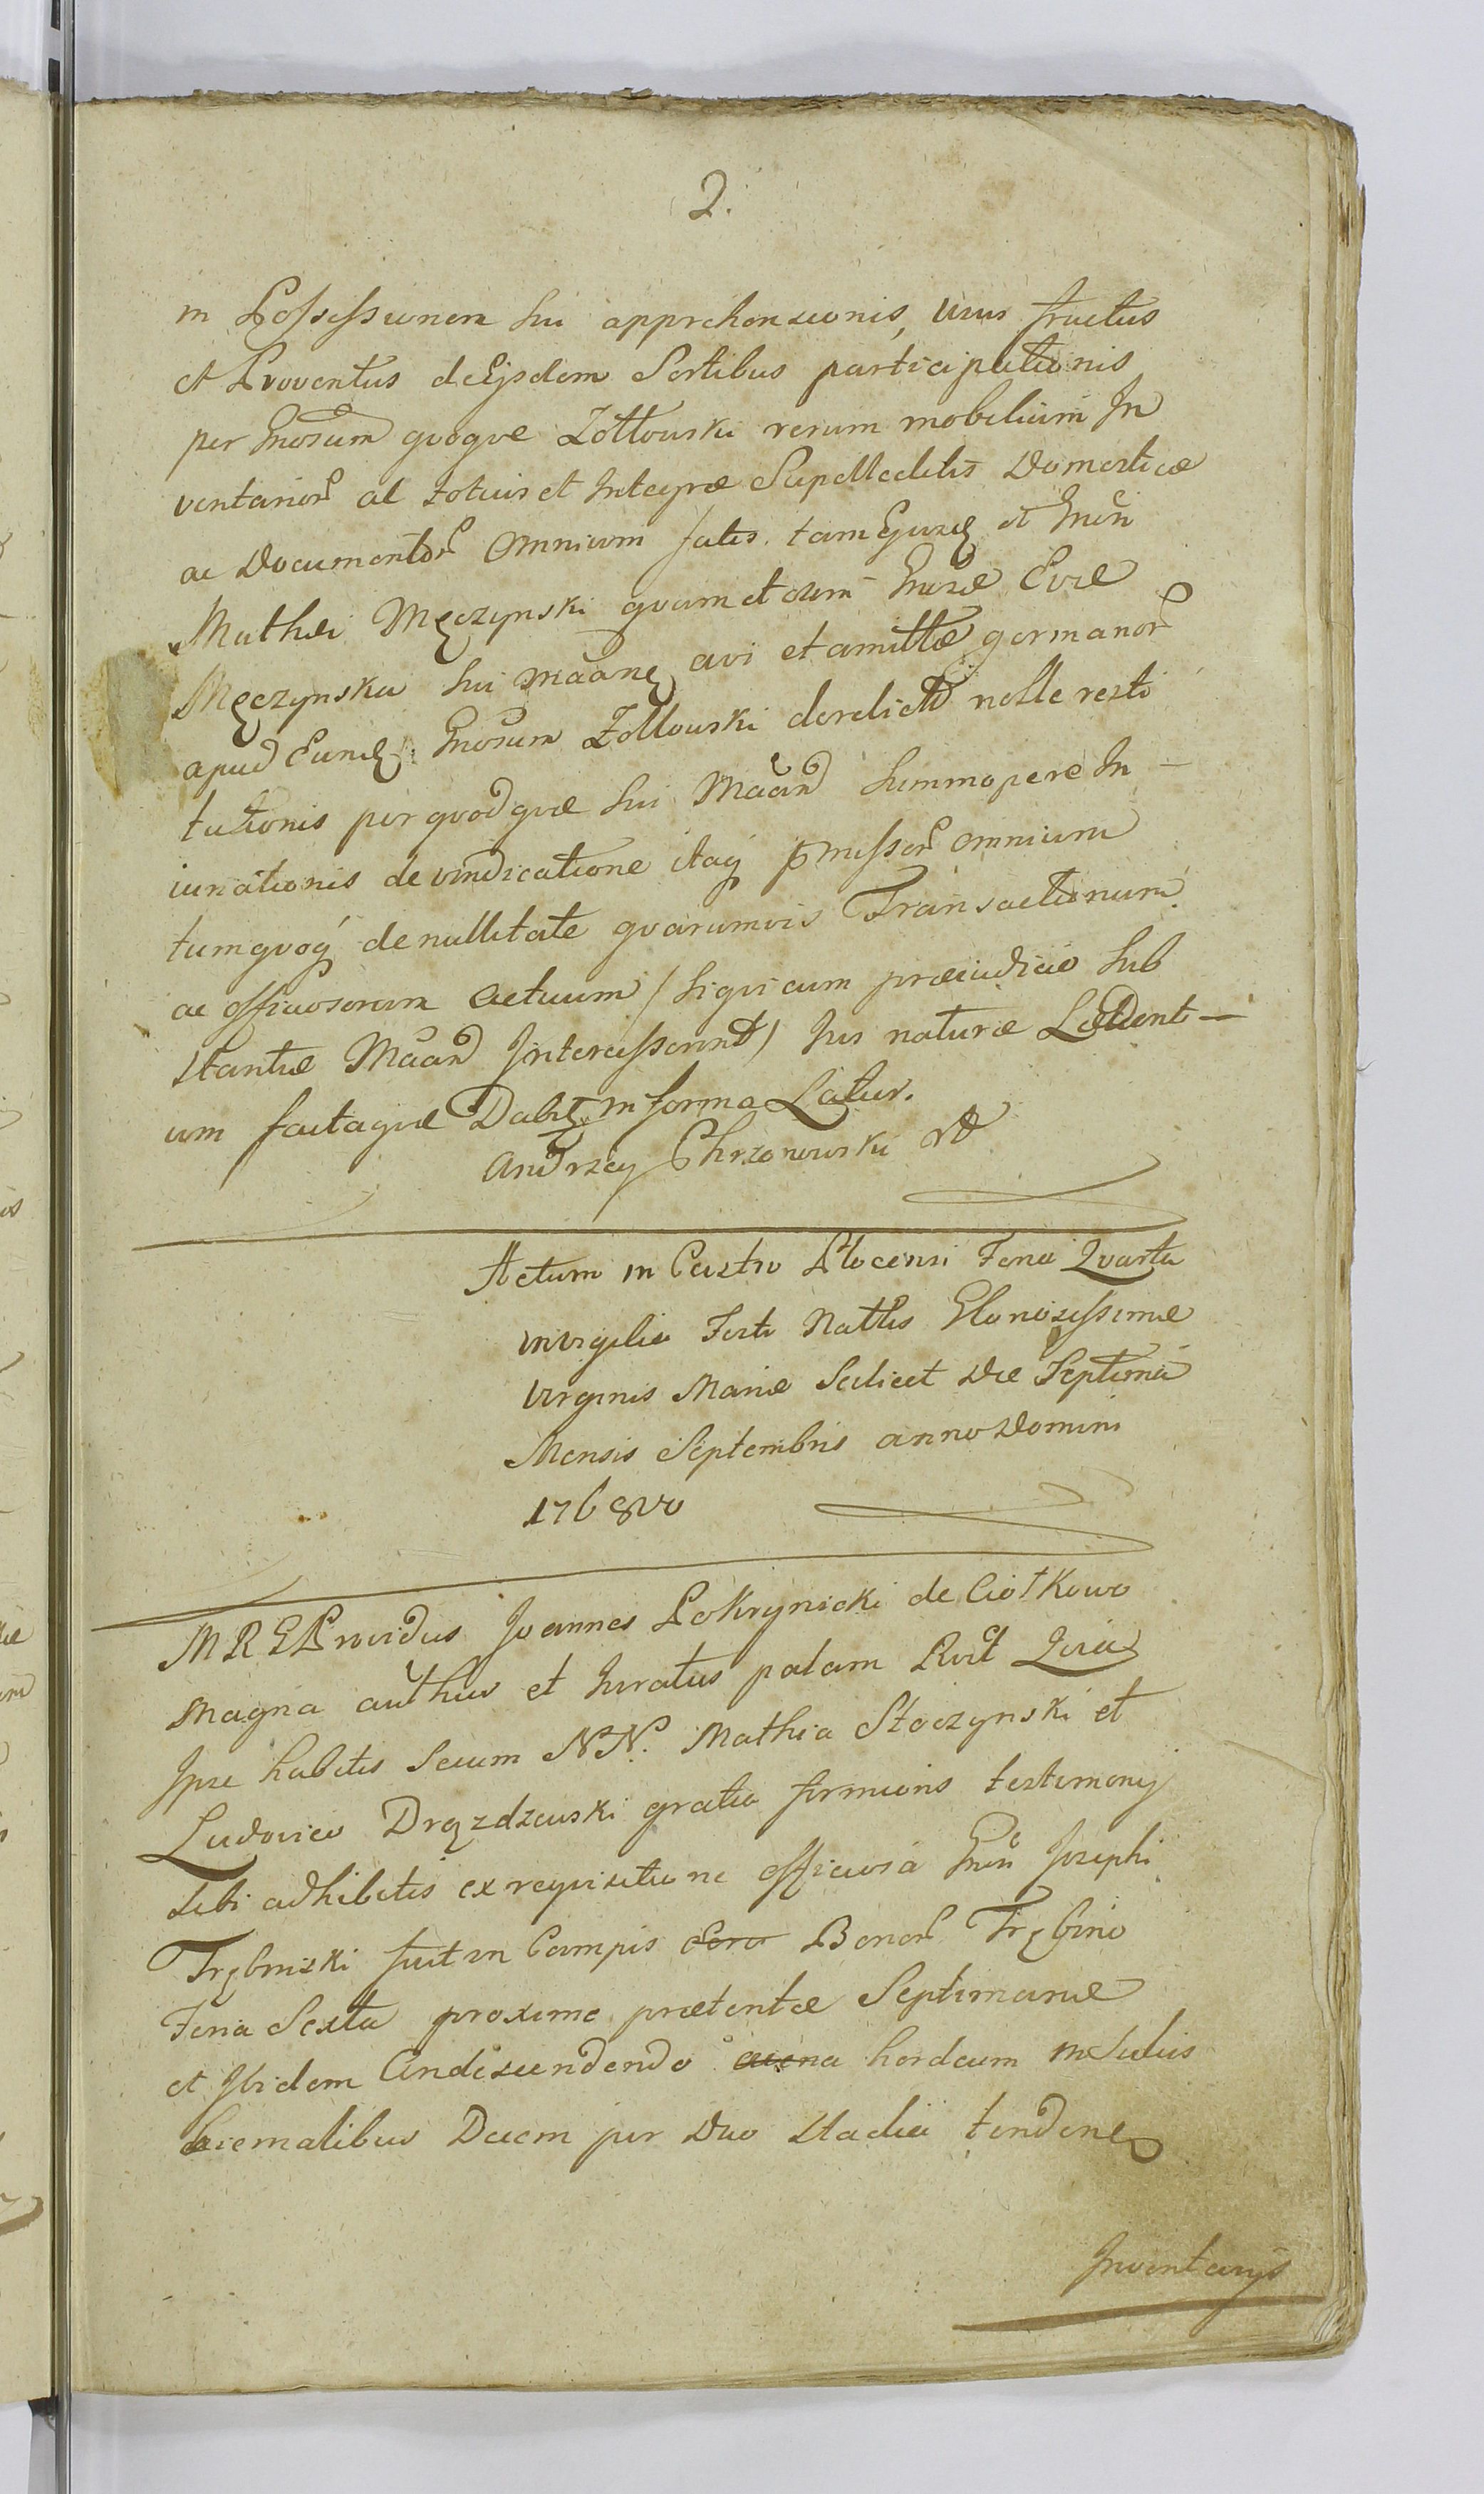 2.
in Possessionem sui apprehensionis, usus fructus
et Proventus de Ejsdem Sortibus participationis
per Gnosum quoque Zołtowski rerum mobilium In
ventarior al totius et Integræ Supellectilis Domesticæ
ac Documentor Omnium fatis tam Ejusd et Gnsi
Mathæi Męczynski quam et olim Gnosæ Evæ
Męczynska sui Maane avi et amittæ germanor
apud Eund Gnosum Zołtowski derelict nolle resti
tutionis per quodque sui Maan summopere In
iuriationis de vindicatione itaq pmissor omnium
tum quoq de nullitate quarumvis Transactionum
ac officiosorum Actuum / si qui cum præiudicio sub
stantiæ Maan Intercesserint / Jus naturæ Lædent
um factaque Dabit in forma Latur.
Andrzey Chrzonowski
Actum in Castro Plocensi Feria Quarta
in vigilia Festi Nattis Gloriosissimæ
Virginis Mariæ Scilicet Die Septima
Mensis Septembris anno Domini
1768vo
M R G Providus Joannes Pokrynicki de Ciołkowo
Magna authus et Juratus palam Rvit Qvia
Ipse habitis secum NN. Mathia Stoczynski et
Ludovico Drązdzewski gratia firmioris testimonij
sibi adhibitis ex requisitione officiosa Gnsi Josephi
Trębinski fuit in Campis Bonor Trębino
Feria Sexta proxime præteritæ Septimanæ
et Ibidem Condescendendo avena hordeum in Sulcis
hiemalibus Decem per Duo Stadia tendene
Inventarijs